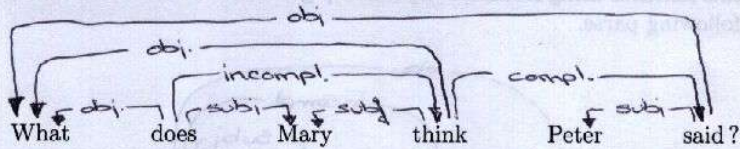 obj
obj.
incompl. compl.
obj. subj subj subj
What does Mary think Peter said?